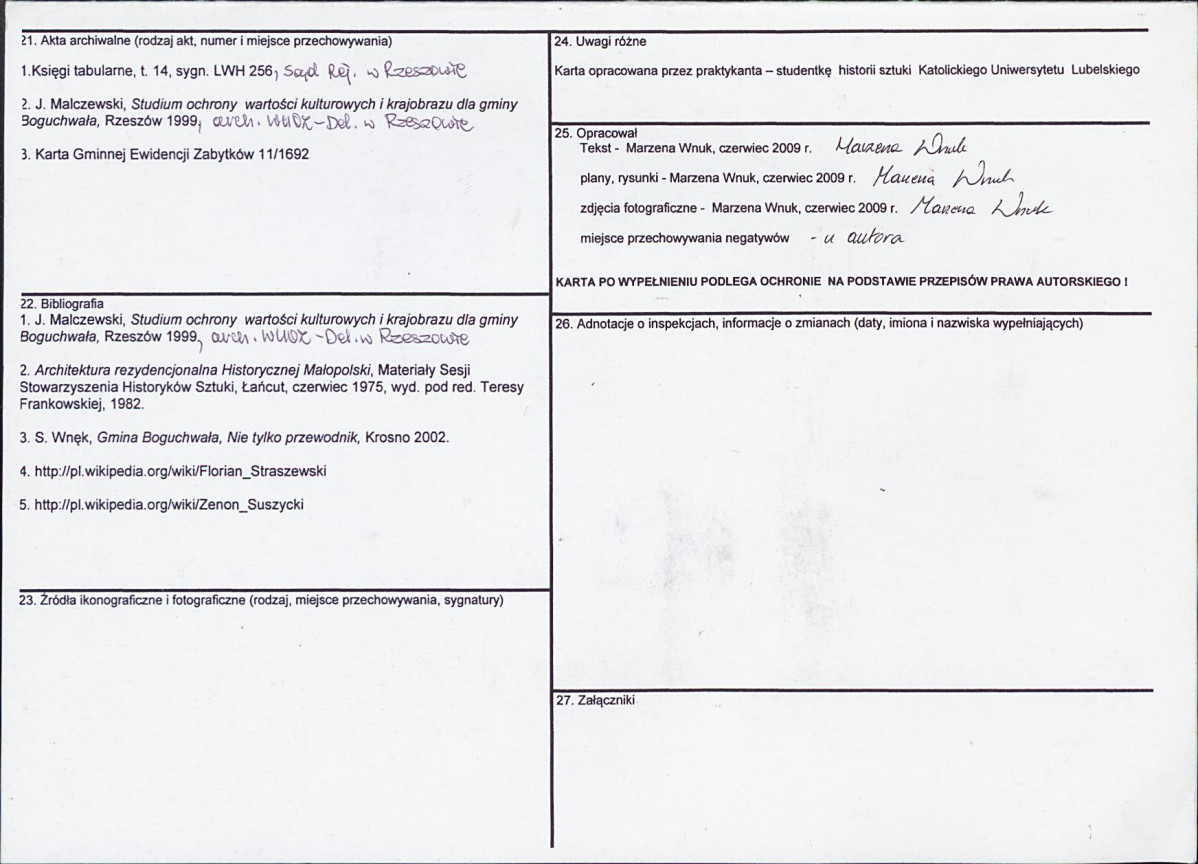 21. Akta archiwalne (rodzaj akt, numer i miejsce przechowywania)
1.Księgi tabularne, t. 14, sygn. LWH 256, Sąd Rej. w Rzeszowie
2. J. Malczewski, Studium ochrony wartości kulturowych i krajobrazu dla gminy
Boguchwała, Rzeszów 1999, arch. WUOZ-Del. w Rzeszowie
3. Karta Gminnej Ewidencji Zabytków 11/1692
22. Bibliografia
1. J. Malczewski, Studium ochrony wartości kulturowych i krajobrazu dla gminy
Boguchwała, Rzeszów 1999, arch. WUOZ-Del. w Rzeszowie
2. Architektura rezydencjonalna Historycznej Małopolski, Materiały Sesji
Stowarzyszenia Historyków Sztuki, Łańcut, czerwiec 1975, wyd. pod red. Teresy
Frankowskiej, 1982.
3. S. Wnęk, Gmina Boguchwała, Nie tylko przewodnik, Krosno 2002.
4. http://pl.wikipedia.org/wiki/Florian_Straszewski
5. http://pl.wikipedia.org/wiki/Zenon_Suszycki
23. Źródła ikonograficzne i fotograficzne (rodzaj, miejsce przechowywania, sygnatury)
24. Uwagi różne
Karta opracowana przez praktykanta – studentkę historii sztuki Katolickiego Uniwersytetu Lubelskiego
25. Opracował
Tekst - Marzena Wnuk, czerwiec 2009 r. Marzena Wnuk
plany, rysunki - Marzena Wnuk, czerwiec 2009 r. Marzena Wnuk
zdjęcia fotograficzne - Marzena Wnuk, czerwiec 2009 r. Marzena Wnuk
miejsce przechowywania negatywów - u autora
KARTA PO WYPEŁNIENIU PODLEGA OCHRONIE NA PODSTAWIE PRZEPISÓW PRAWA AUTORSKIEGO !
26. Adnotacje o inspekcjach, informacje o zmianach (daty, imiona i nazwiska wypełniających)
27. Załączniki